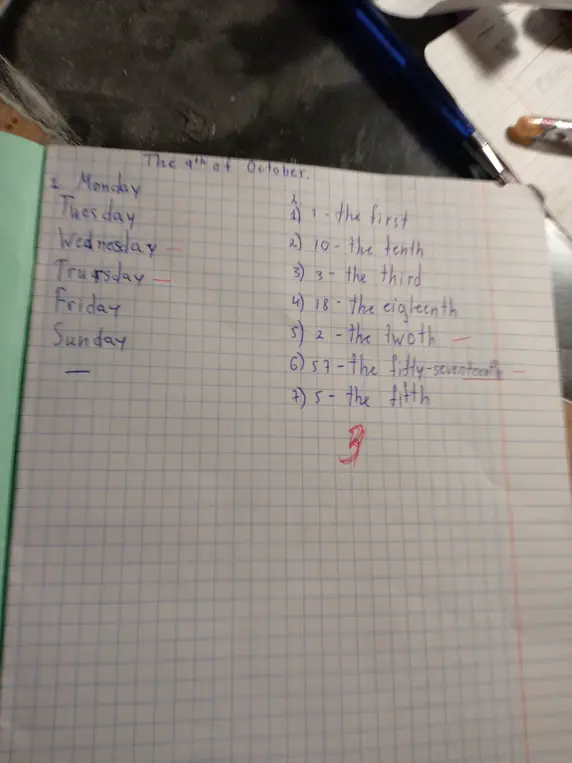 The 9th of October.
1 Monday
Tuesday
Wednesday
Truersday
Friday
Sunday
—
2
1) 1 - the first
2) 10 - the tenth
3) 3 - the third
4) 18 - the eigleenth
5) 2 - the twoth
6) 57 - the fifty-seventeenth
7) 5 - the fifth
3